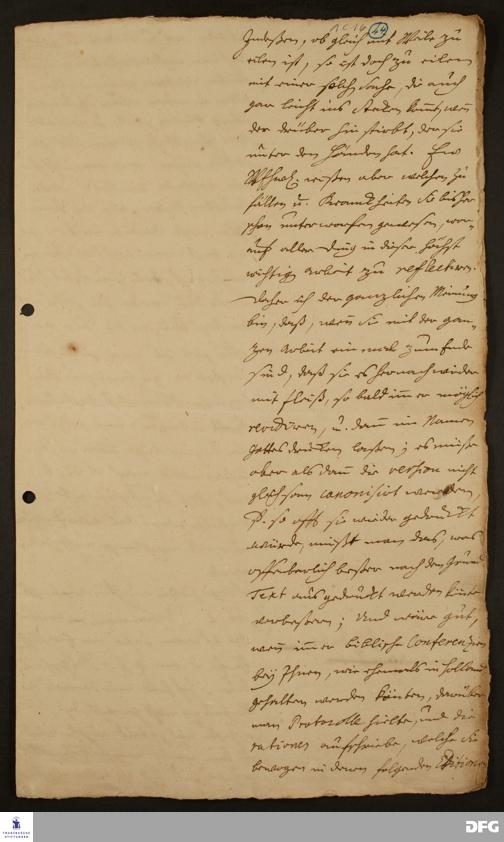 1 C 16 44
Indeßen, ob gleich mit Weile zu
eilen ist, so ist doch zu eilen
mit einer solchen Sache, die auch
gar leicht ins Steken kömt, wen
der drüber hin stirbt, der sie
unter den Händen hat. Ew
wißen aber welchen Zu
fällen u. Krankheiten Sie bisher
schon unterworfen gewesen, wor-
auf allerdings in dieser höchst
wichtigen Arbeit zu reflectiren.
Daher ich der gänzlichen Meinung
bin, daß, wenn Sie mit der gan-
zen Arbeit ein mal zum Ende
sind, daß sie es hernach wieder
mit fleiß, so bald immer möglich
revidiren, u. dann im Namen
Gottes drucken laßen; es müste
aber als dann die version nicht
gleichsam canonisirt werden,
so offt sie wieder gedruckt
würde, müßte man das, was
offenbarlich beßer nach dem Grund
Text ausgedruckt werden könte
verbeßern; Und wäre gut,
wenn immer biblische Conferenzen
bey Ihnen, wie ehemals in Holland
gehalten werden könten, darüber
man Protocolle hielte, und die
rationes aufschriebe, welche Sie
bewogen in denen folgenden Editionen
FRANCKESCHE STIFTUNGEN
DFG